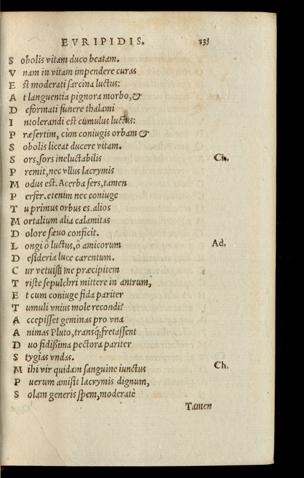 EVRIPIDIS. 233
S obolis vitam duco beatam.
V nam in vitam impendere curas
E st moderati sarcina luctus:
A t languentia pignora morbo, &
D eformati funere thalami
I ntolerandi est cumulus luctus:
P ræsertim, cùm coniugis orbam &
S obolis liceat ducere vitam.
S ors, sors ineluctabilis Ch.
P remit, nec vllus lacrymis
M odus est. Acerba fers, tamen
P erfer. etenim nec coniuge
T u primus orbus es. alios
M ortalium alia calamitas
D olore sæuo conficit.
L ongi ô luctus, ô amicorum Ad.
D esideria luce carentum.
C ur vetuisti me præcipitem
T riste sepulchri mittere in antrum,
E t cum coniuge fida pariter
T umuli vnius mole recondi?
A ccepisset geminas pro vna
A nimas Pluto, transq; fretassent
D uo fidissima pectora pariter
S tygias vndas.
M ihi vir quidam sanguine iunctus Ch.
P uerum amisit lacrymis dignum,
S olam generis spem, moderatè
Tamen